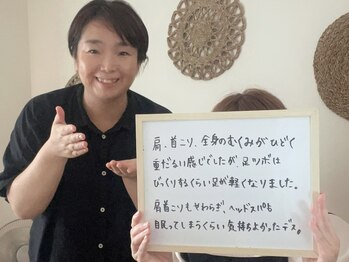 肩・首こり、全身のむくみがひどく
重だるい感じでしたが足ツボは
びっくりするくらい足が軽くなりました。
肩首こりもやわらぎ、ヘッドスパも
眠ってしまうくらい気持ちよかったデス。